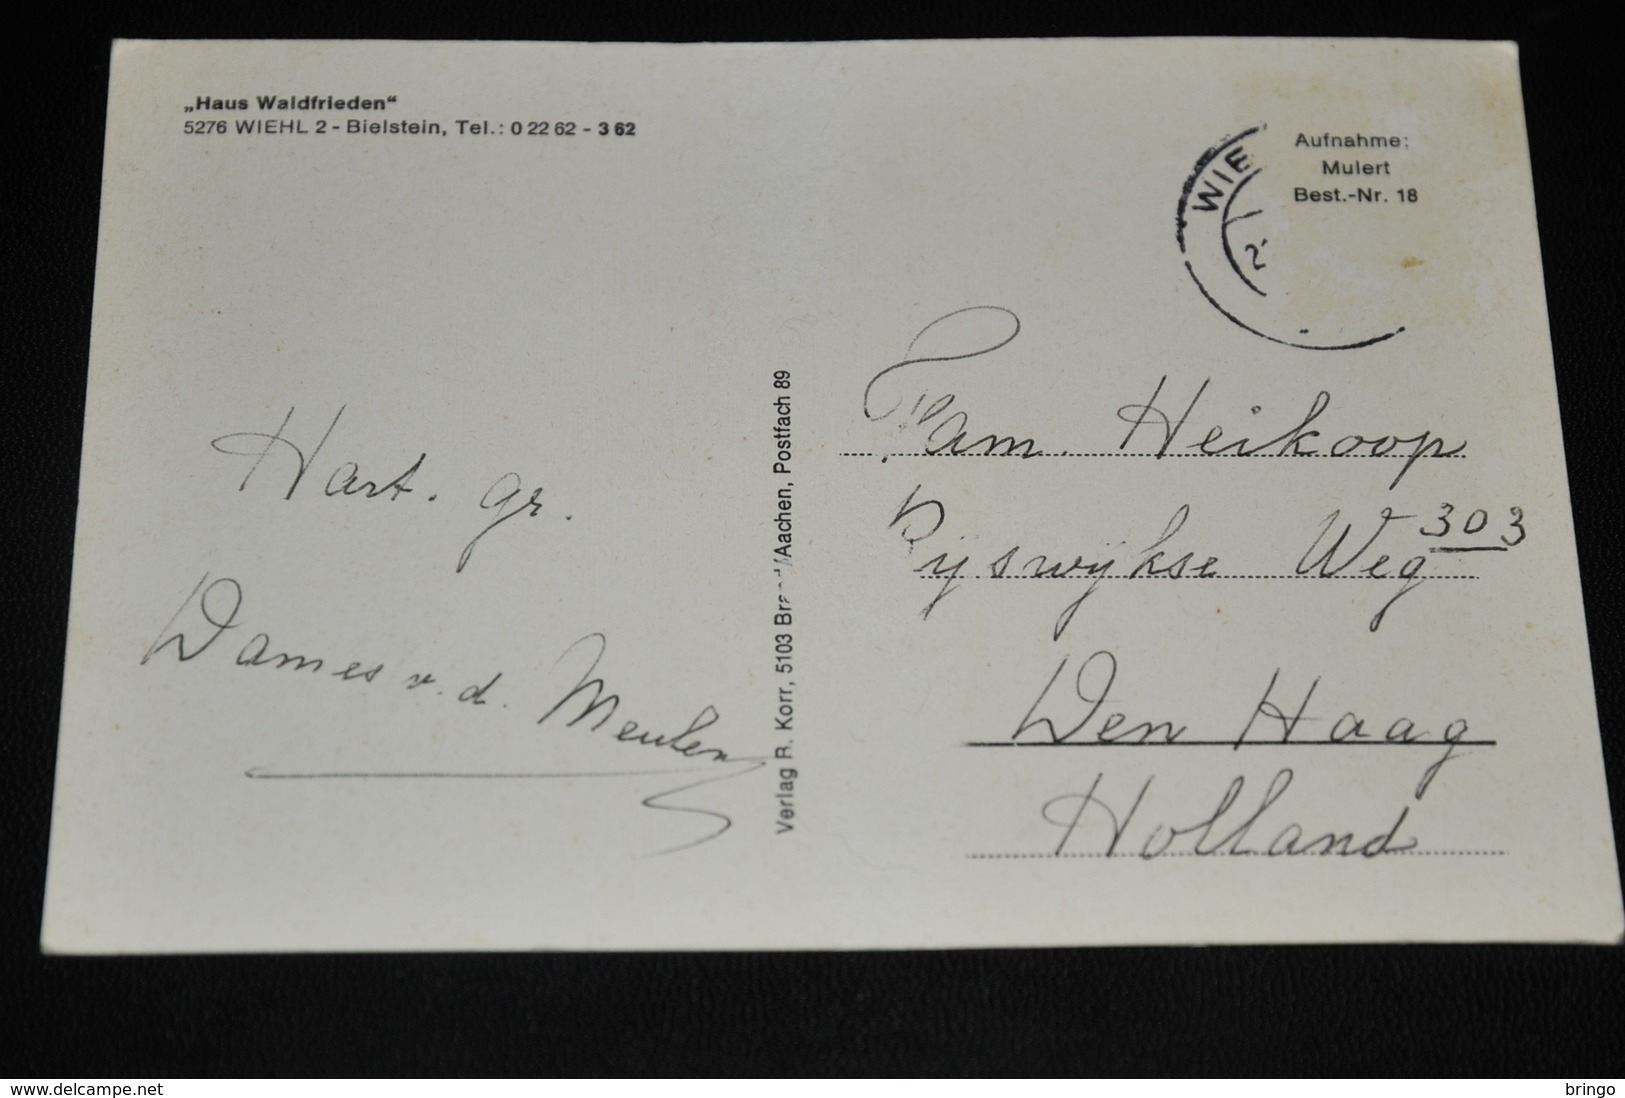 „Haus Waldfrieden“
5276 WIEHL 2 - Bielstein, Tel.: 0 22 62 - 3 62
Aufnahme:
Mulert
Best.-Nr. 18
WIE
2
Hart. gr.
Dames v. d. Meulen
Verlag R. Korr, 5103 Brand/Aachen, Postfach 89
Fam. Heikoop
Ryswykse Weg 303
Den Haag
Holland
www.delcampe.net
bringo